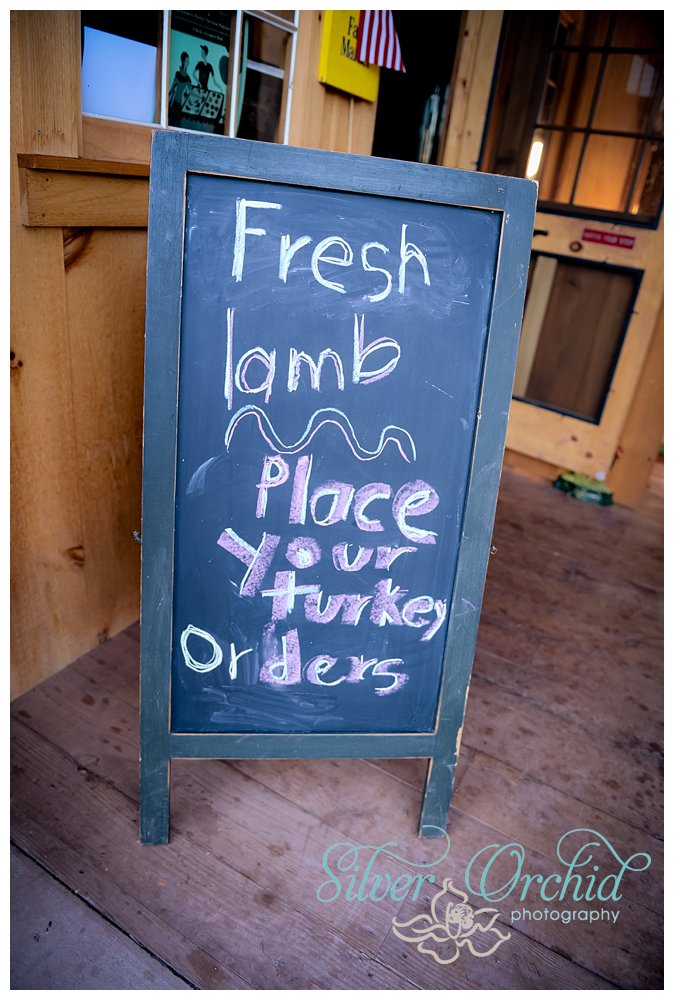 Fresh
lamb
Place
your
turkey
Orders
Silver Orchid
photography